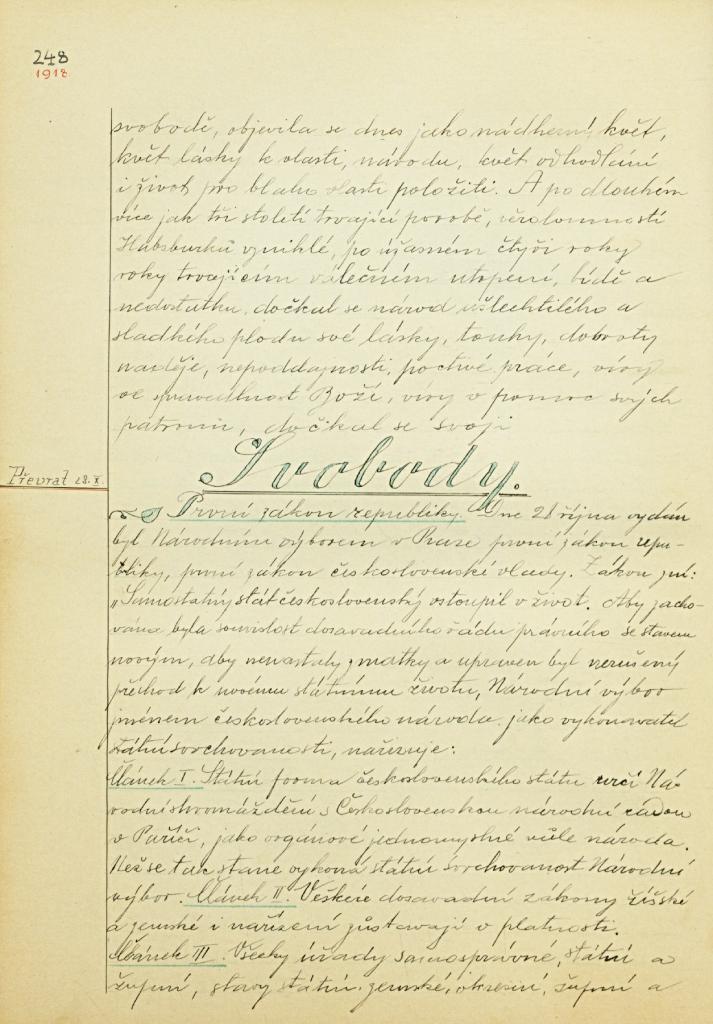 248
1918
svobodě, objevila se dnes jako nádherný květ,
květ lásky k vlasti, národu, květ odhodlání
i život pro blaho vlasti položiti. A po dlouhém
více jak tři století trvající porobě, věrolomností
Habsburků vzniklé, po úžasném čtyři roky
roky trvajícím válečném utrpení, bídě a
nedostatku, dočkal se národ ušlechtilého a
sladkého plodu své lásky, touhy, dobroty
naděje, nepoddajnosti, poctivé práce, víry
ve spravedlnost Boží, víry v pomoc svých
patronů, dočkal se svojí
Svobody.
Převrat 28.X.
První zákon republiky. Dne 28 října vydán
byl Národním výborem v Praze první zákon repu-
bliky, první zákon československé vlády. Zákon zní:
„Samostatný stát československý vstoupil v život. Aby zacho-
vána byla souvislost dosavadního řádu právního se stavem
novým, aby nenastaly zmatky a upraven byl nerušený
přechod k novému státnímu životu, Národní výbor
jménem československého národa jako vykonavatel
státní svrchovanosti, nařizuje:
Článek I. Státní formu československého státu určí Ná-
rodní shromáždění s Československou národní radou
v Paříži, jako orgánové jednomyslné vůle národa.
Než se tak stane vykoná státní svrchovanost Národní
výbor. Článek II. Veškeré dosavadní zákony říšské
a zemské i nařízení zůstavají v platnosti.
Článek III. Všecky úřady samosprávné, státní a
župní, stavy státní, zemské, okresní, župní a